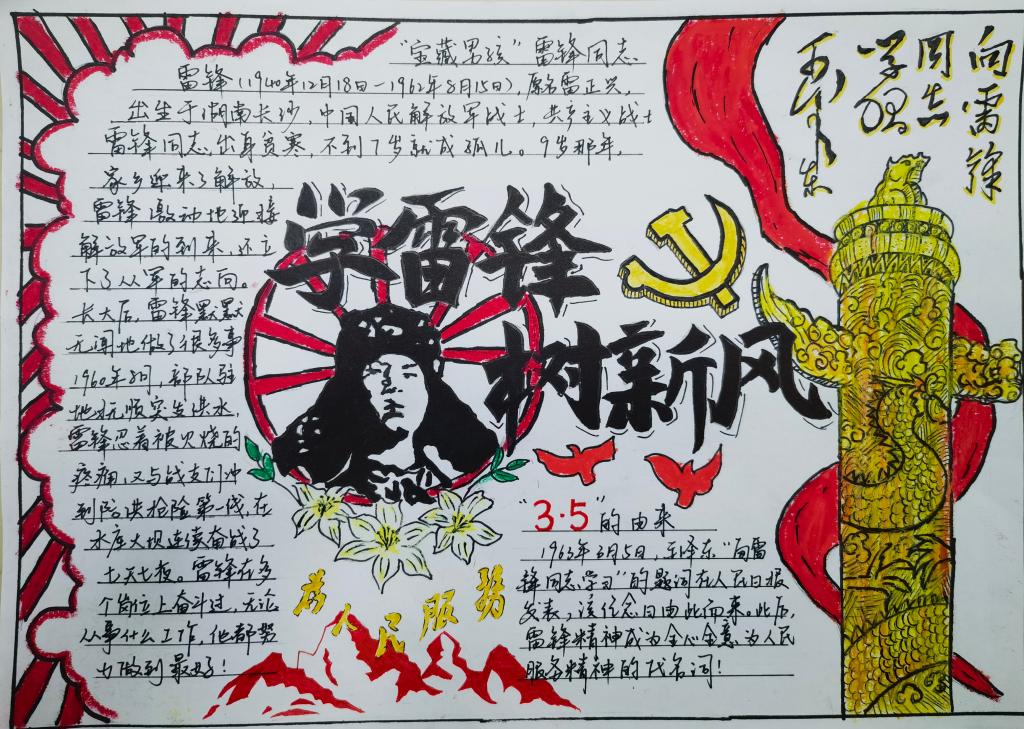 "宝藏男孩"雷锋同志
雷锋(1940年12月18日-1962年8月15日),原名雷正兴,
出生于湖南长沙,中国人民解放军战士,共产主义战士
雷锋同志出身贫寒,不到7岁就成孤儿。9岁那年,
家乡迎来了解放,
雷锋激动地迎接
解放军的到来,还立
下了从军的志向。
长大后,雷锋默默
无闻地做了很多事
1960年8月,部队驻
地抚顺突发洪水,
雷锋忍着被火烧的
疼痛,又与战友们冲
到防洪抢险第一线,在
水库大坝连续奋战了
七天七夜。雷锋在多
个岗位上奋斗过,无论
从事什么工作,他都努
力做到最好!
学雷锋
树新风
为人民服务
"3·5"的由来
1963年3月5日,毛泽东"向雷
锋同志学习"的题词在人民日报
发表,该纪念日由此而来。此后,
雷锋精神成为全心全意为人民
服务精神的代名词!
向雷锋
同志
学习
毛泽东